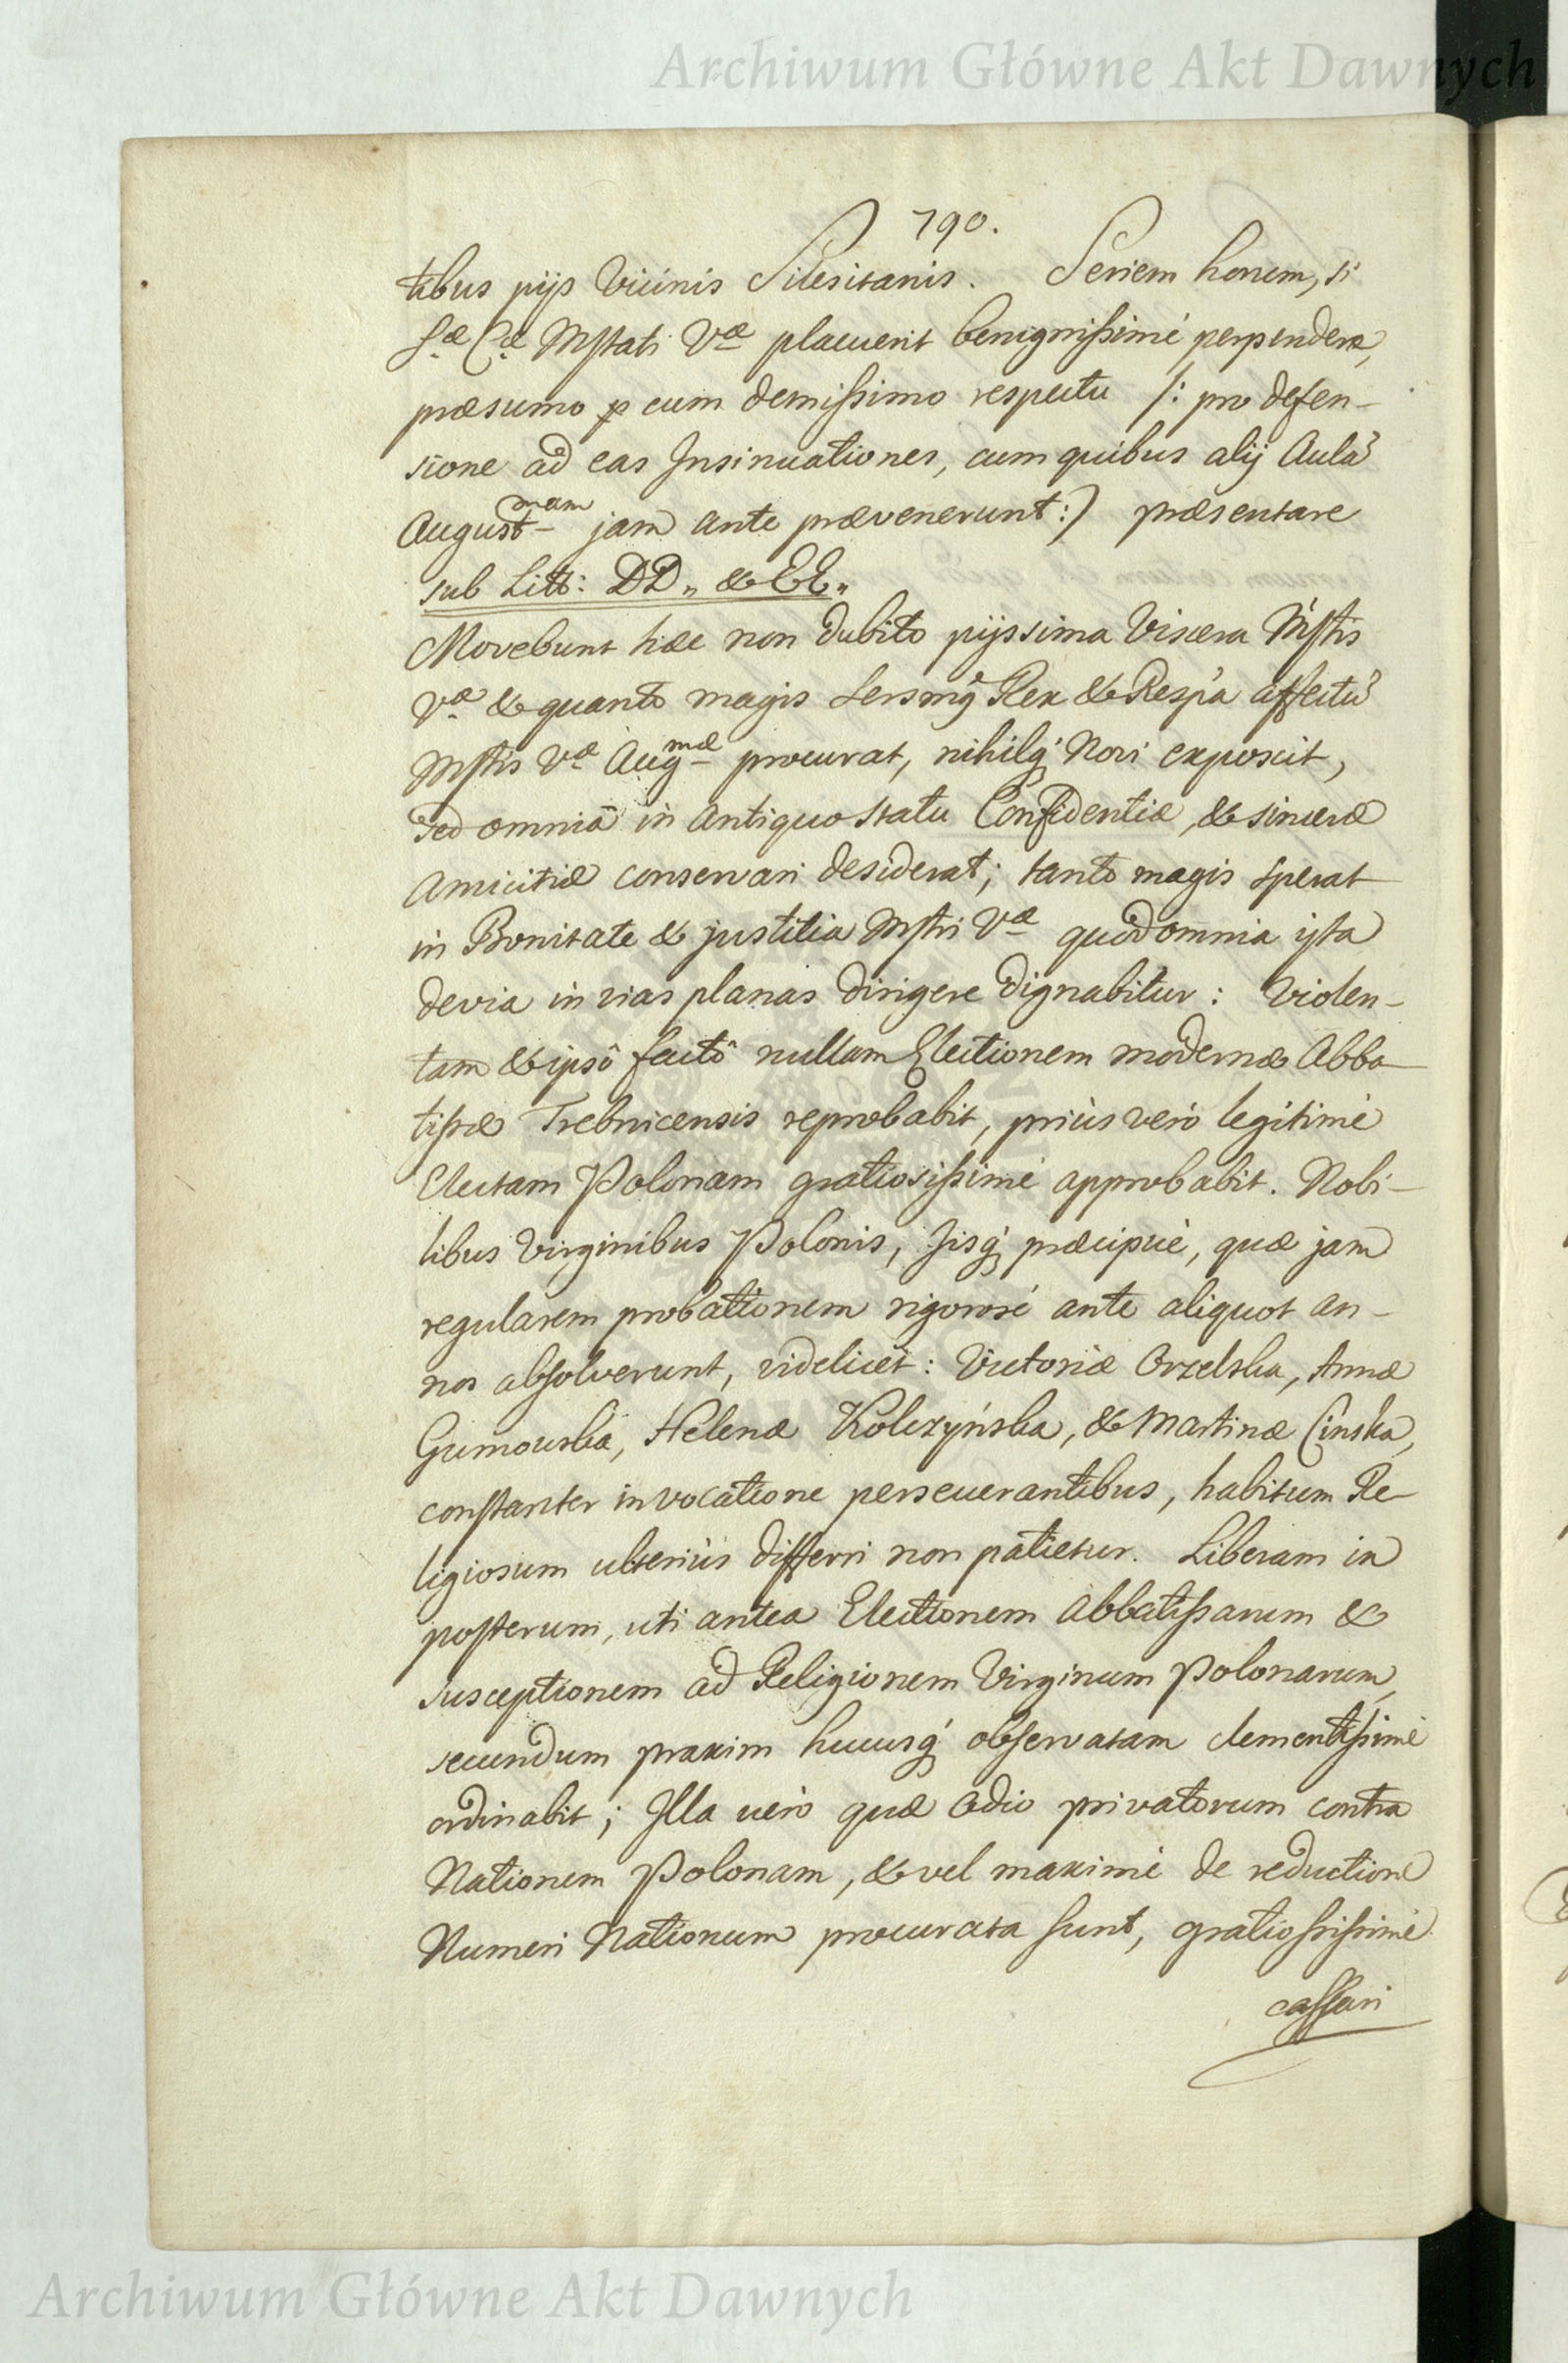 Archiwum Główne Akt Dawnych
790.
tibus pijs Vicinis Silesitanis. Seriem horum, si
S.æ C.æ Mstati V.æ placuerit benignissimè perpendere,
præsumo cum demissimo respectu /: pro defen-
sione ad eas Insinuationes, cum quibus alij Aulã
August.mam jam ante prævenerunt :/ præsentare
sub Litt: DD„ & EE„
Movebunt hæc non dubito pijssima Viscera Mstis
V.æ & quanto magis Sersmq Rex & Respa affectũ
Mstis V.æ Aug.mæ procurat, nihilq Novi exposcit,
sed omnia in antiquo statu Confidentiæ, & sinceræ
Amicitiæ conservari desiderat; tanto magis sperat
in Bonitate & justitia Mstis V.æ quod omnia ista
devia in vias planas dirigere dignabitur: Violen-
tam & ipsô factô nullam Electionem modernæ Abba-
tissæ Trebnicensis reprobabit, priùs verò legitimè
Electam Polonam gratiosissimè approbabit. Nobi-
libus Virginibus Polonis, Jisq præcipuè, quæ jam
regularem probationem rigorosè ante aliquot an-
nos absolverunt, videlicèt: Victoriæ Orzelska, Annæ
Gumowska, Helenæ Kolczyńska, & Martinæ Cinska,
constanter in vocatione perseverantibus, habitum Re-
ligiosum ulteriùs differri non patietur. Liberam in
posterum, uti antea Electionem Abbatissarum &
susceptionem ad Religionem Virginum Polonarum,
secundum praxim hucusq observatam clementissimè
ordinabit; Illa verò quæ Odio privatorum contra
Nationem Polonam, & vel maximè de reductione
Numeri Nationum procurata sunt, gratiosissimè
cassari
Archiwum Główne Akt Dawnych